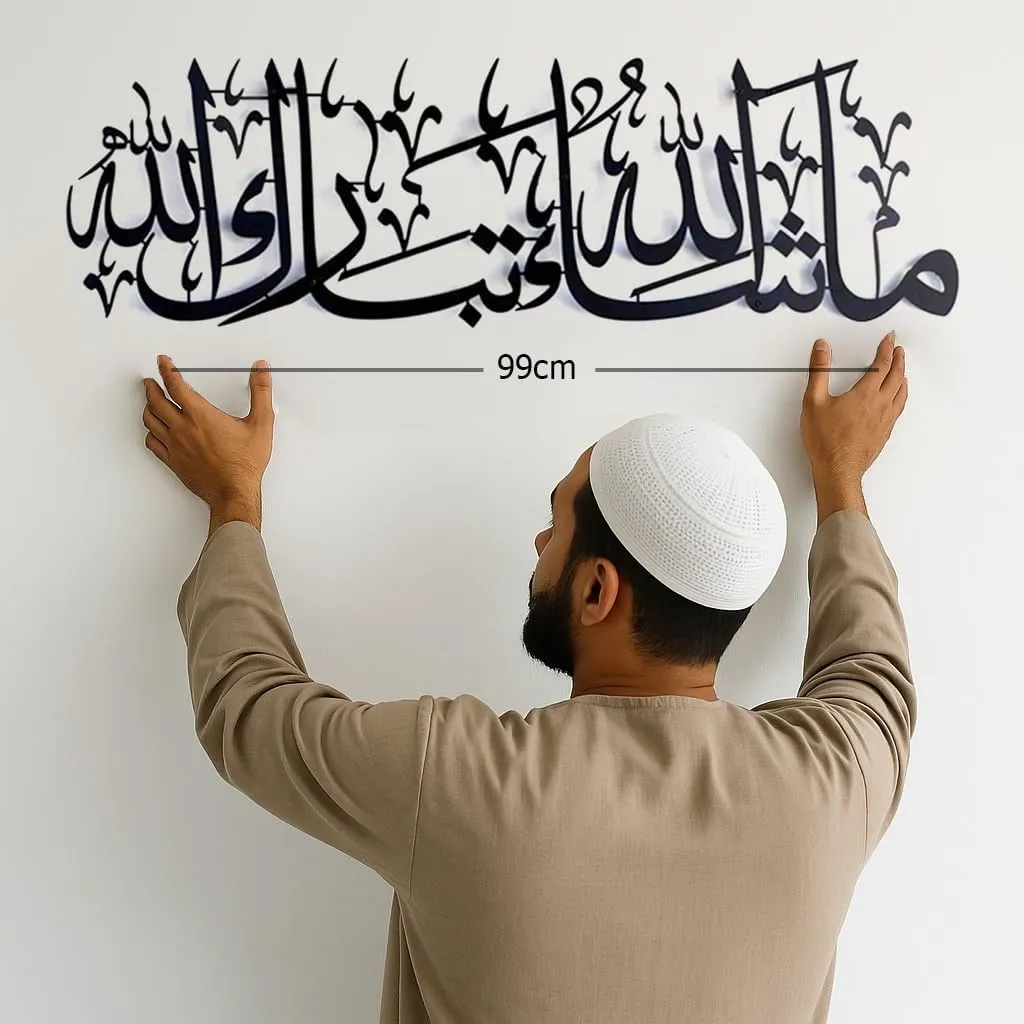 ما شاء الله تبارك الله
99cm